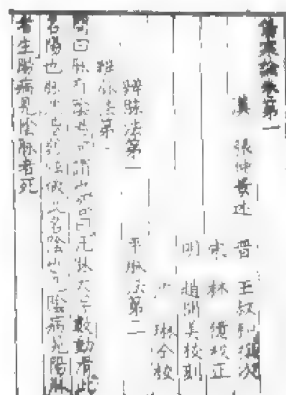 傷寒論卷第一
漢 張仲景述 晉 王叔和撰次
宋 林億校正
明 趙開美校刻
琳仝校
辨脉法第一 平脉法第二
辨脉法第一
問曰脉有陰陽何謂也荅曰凡脉大浮數動滑此
名陽也脉沈濇弱弦微此名陰也凡陰病見陽脉
者生陽病見陰脉者死